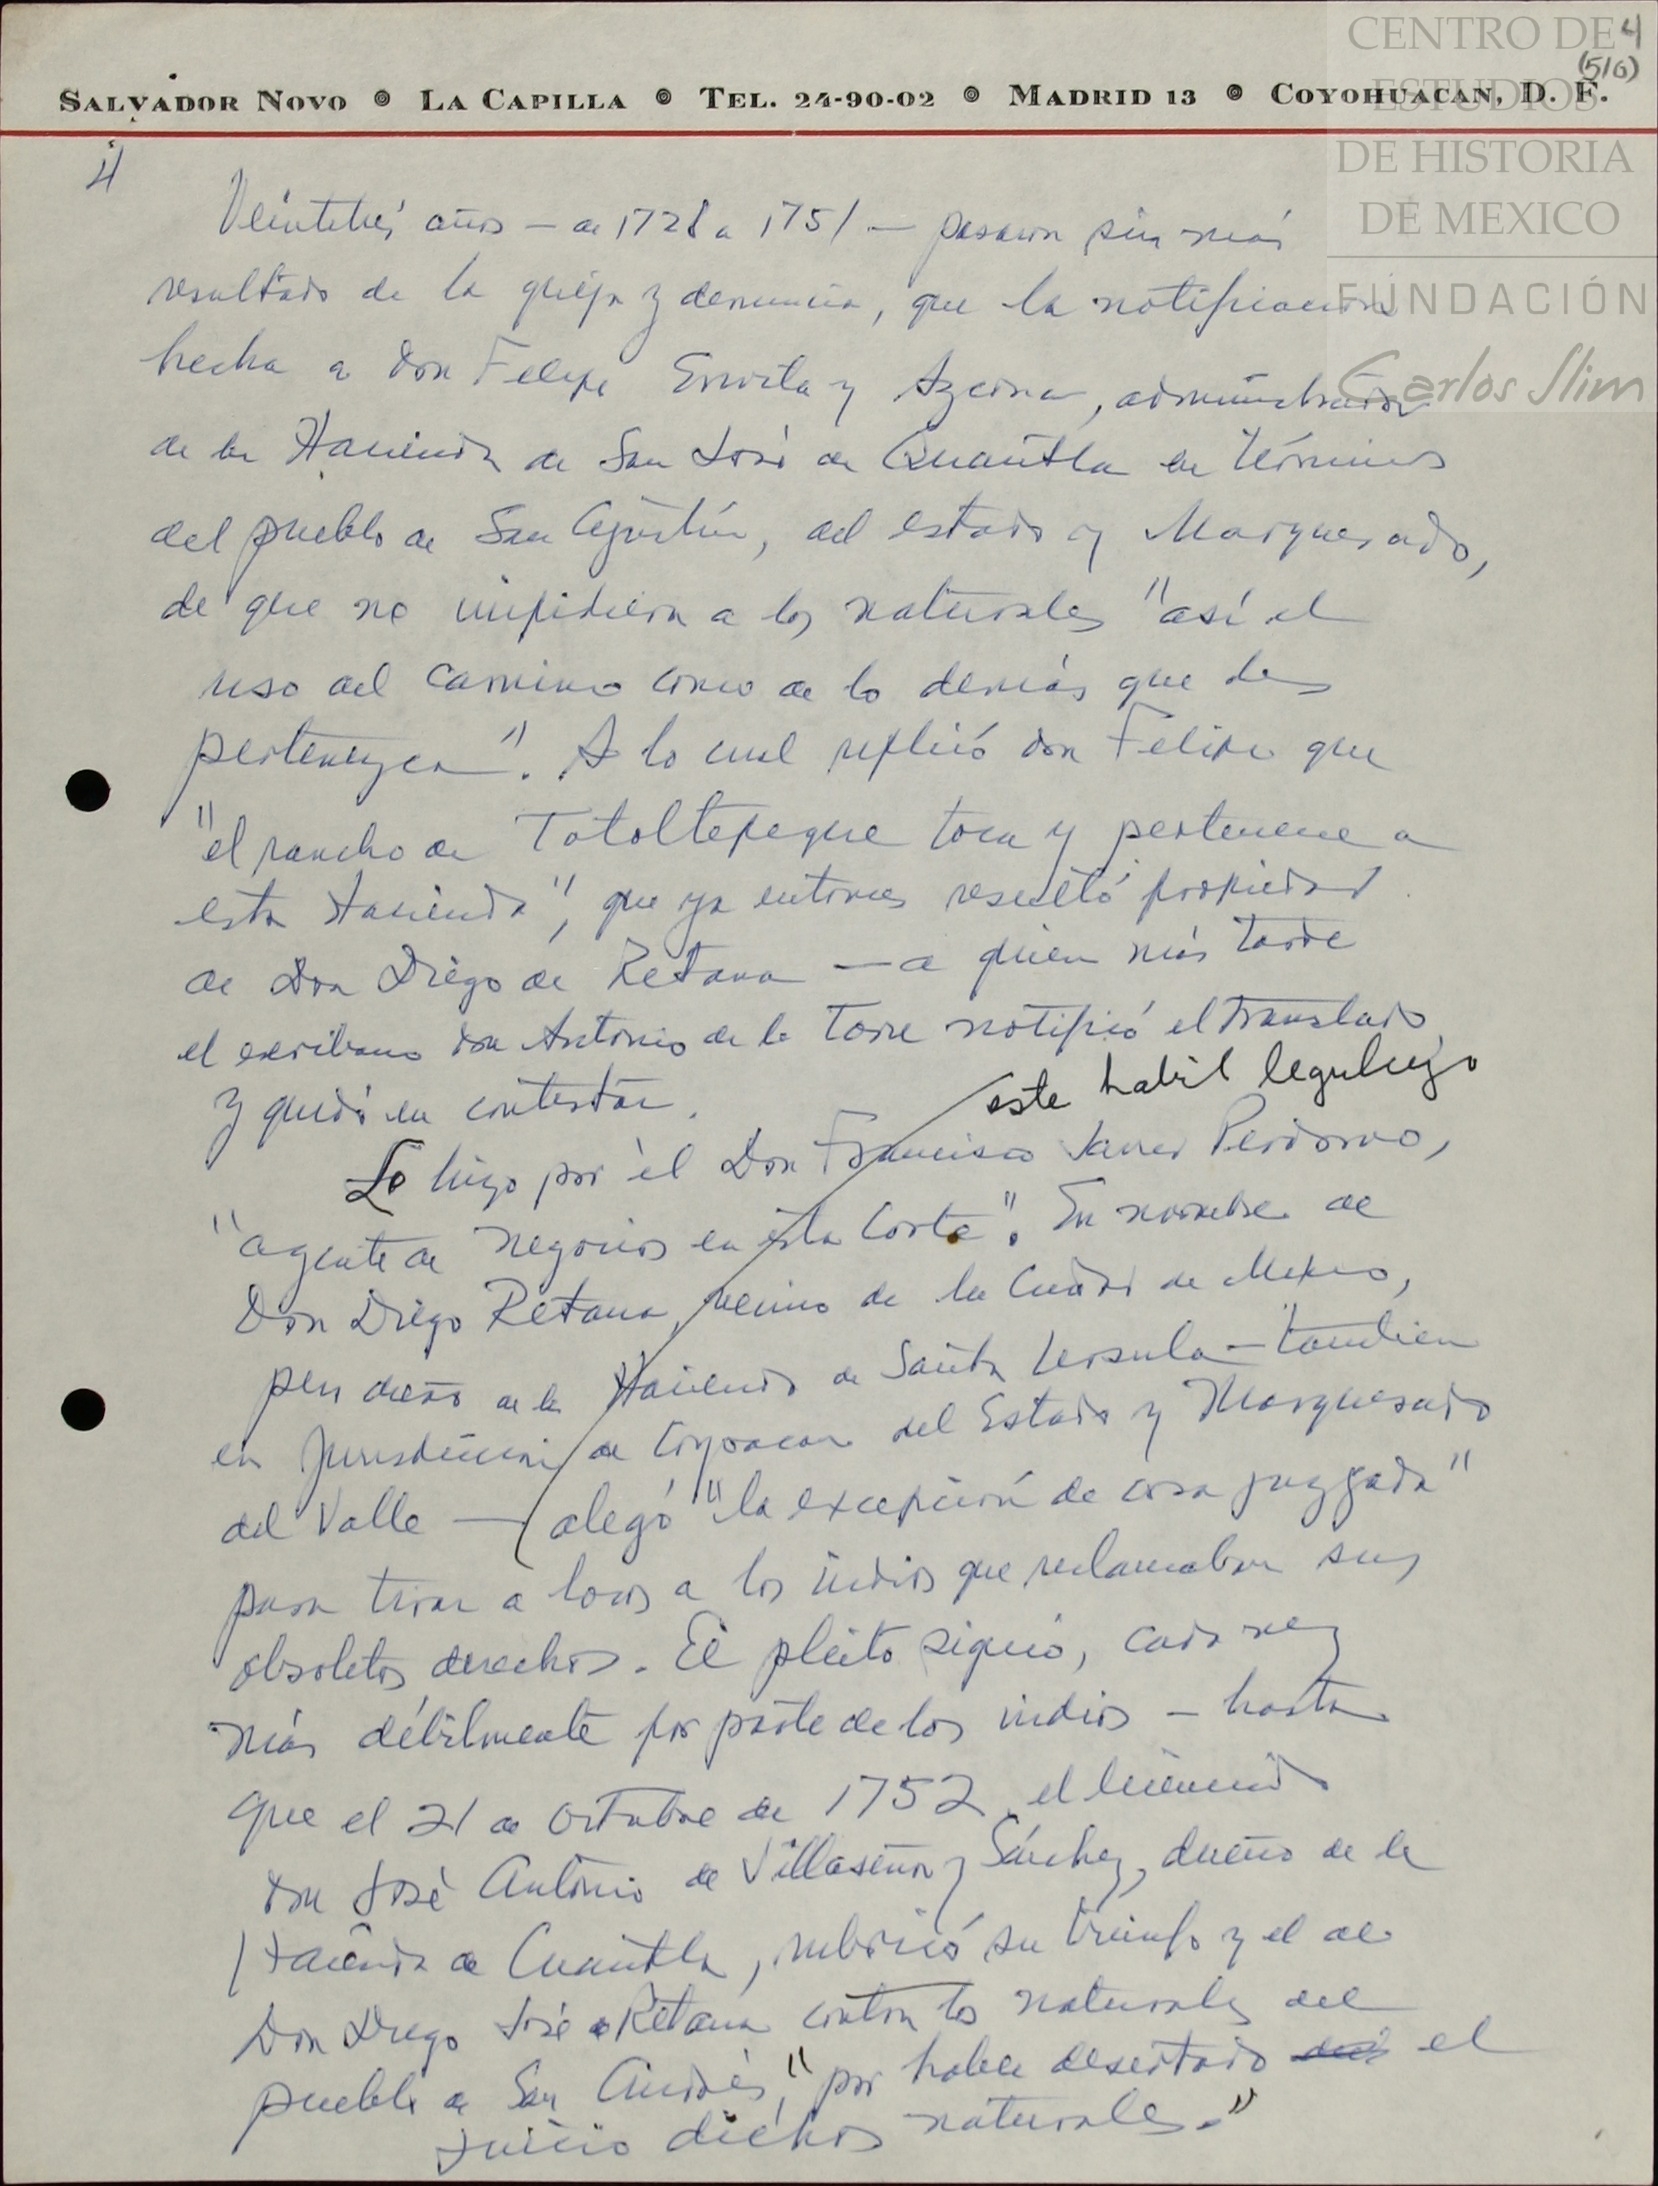 CENTRO DE
ESTUDIOS
DE HISTORIA
DE MEXICO
FUNDACIÓN
Carlos Slim
4
(516)
SALVADOR NOVO LA CAPILLA TEL. 24-90-02 MADRID 13 COYOHUACAN, D. F.
4
Veintitrés años — de 1728 a 1751 — pasaron sin más
resultado de la queja y denuncia, que la notificación
hecha a don Felipe y, administrador
de la Hacienda de San José de Cuautla en términos
del pueblo de San Agustín, del estado y Marquesado,
de que no impidiera a los naturales "así el
uso del camino como de lo demás que les
pertenezca". A lo cual replicó don Felipe que
"el rancho de Totoltepeque toca y pertenece a
esta Hacienda", que ya entonces resultó propiedad
de Don Diego de Retana — a quien más tarde
el escribano don Antonio de la Torre notificó el translado
y quedó en contestar.
este habil leguleyo
Lo hizo por él Don Francisco Javier Perdomo,
"agente de negocios en esta Corte". En nombre de
Don Diego Retana, vecino de la Ciudad de México,
pero dueño de la Hacienda de Santa Ursula — también
en jurisdicción de Coyoacan del Estado y Marquesado
del Valle — alegó "la excepción de cosa juzgada"
para tirar a locos a los indios que reclamaban sus
obsoletos derechos. El pleito siguió, cada vez
más débilmente por parte de los indios — hasta
que el 21 de octubre de 1752 el licenciado
don José Antonio de Villaseñor y Sánchez, dueño de la
Hacienda de Cuautla, rubricó su triunfo y el de
Don Diego José Retana contra los naturales del
pueblo de San Andrés, "por haber desertado el
juicio dichos naturales."